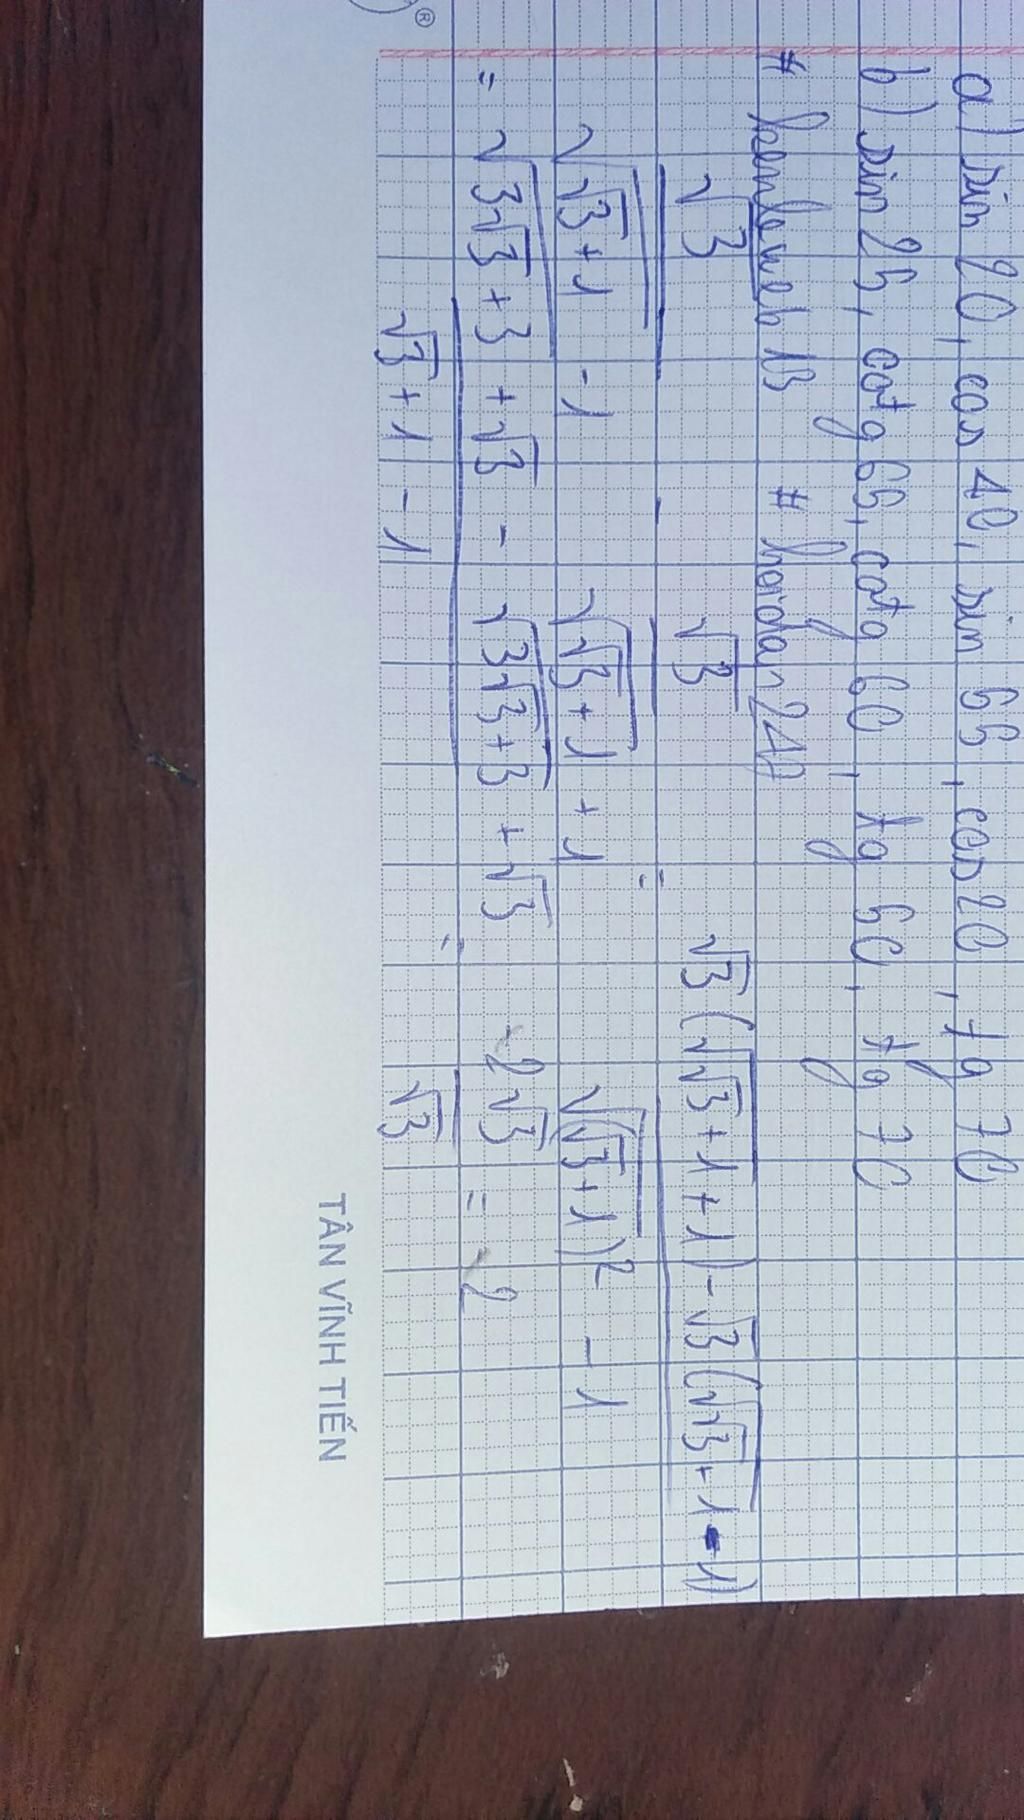 a) sin 20, cos 40, sin 65, cos 20, tg 70
b) sin 25, cotg 65, cotg 60, tg 50, tg 70
√3 / (√(√3+1) - 1) - √3 / (√(√3+1) + 1) = (√3(√(√3+1) + 1) - √3(√(√3+1) - 1)) / (√(√3+1)² - 1)
= (√(3√3+3) + √3 - √(3√3+3) + √3) / (√3+1 - 1) = 2√3 / √3 = 2
TÂN VĨNH TIẾN
®